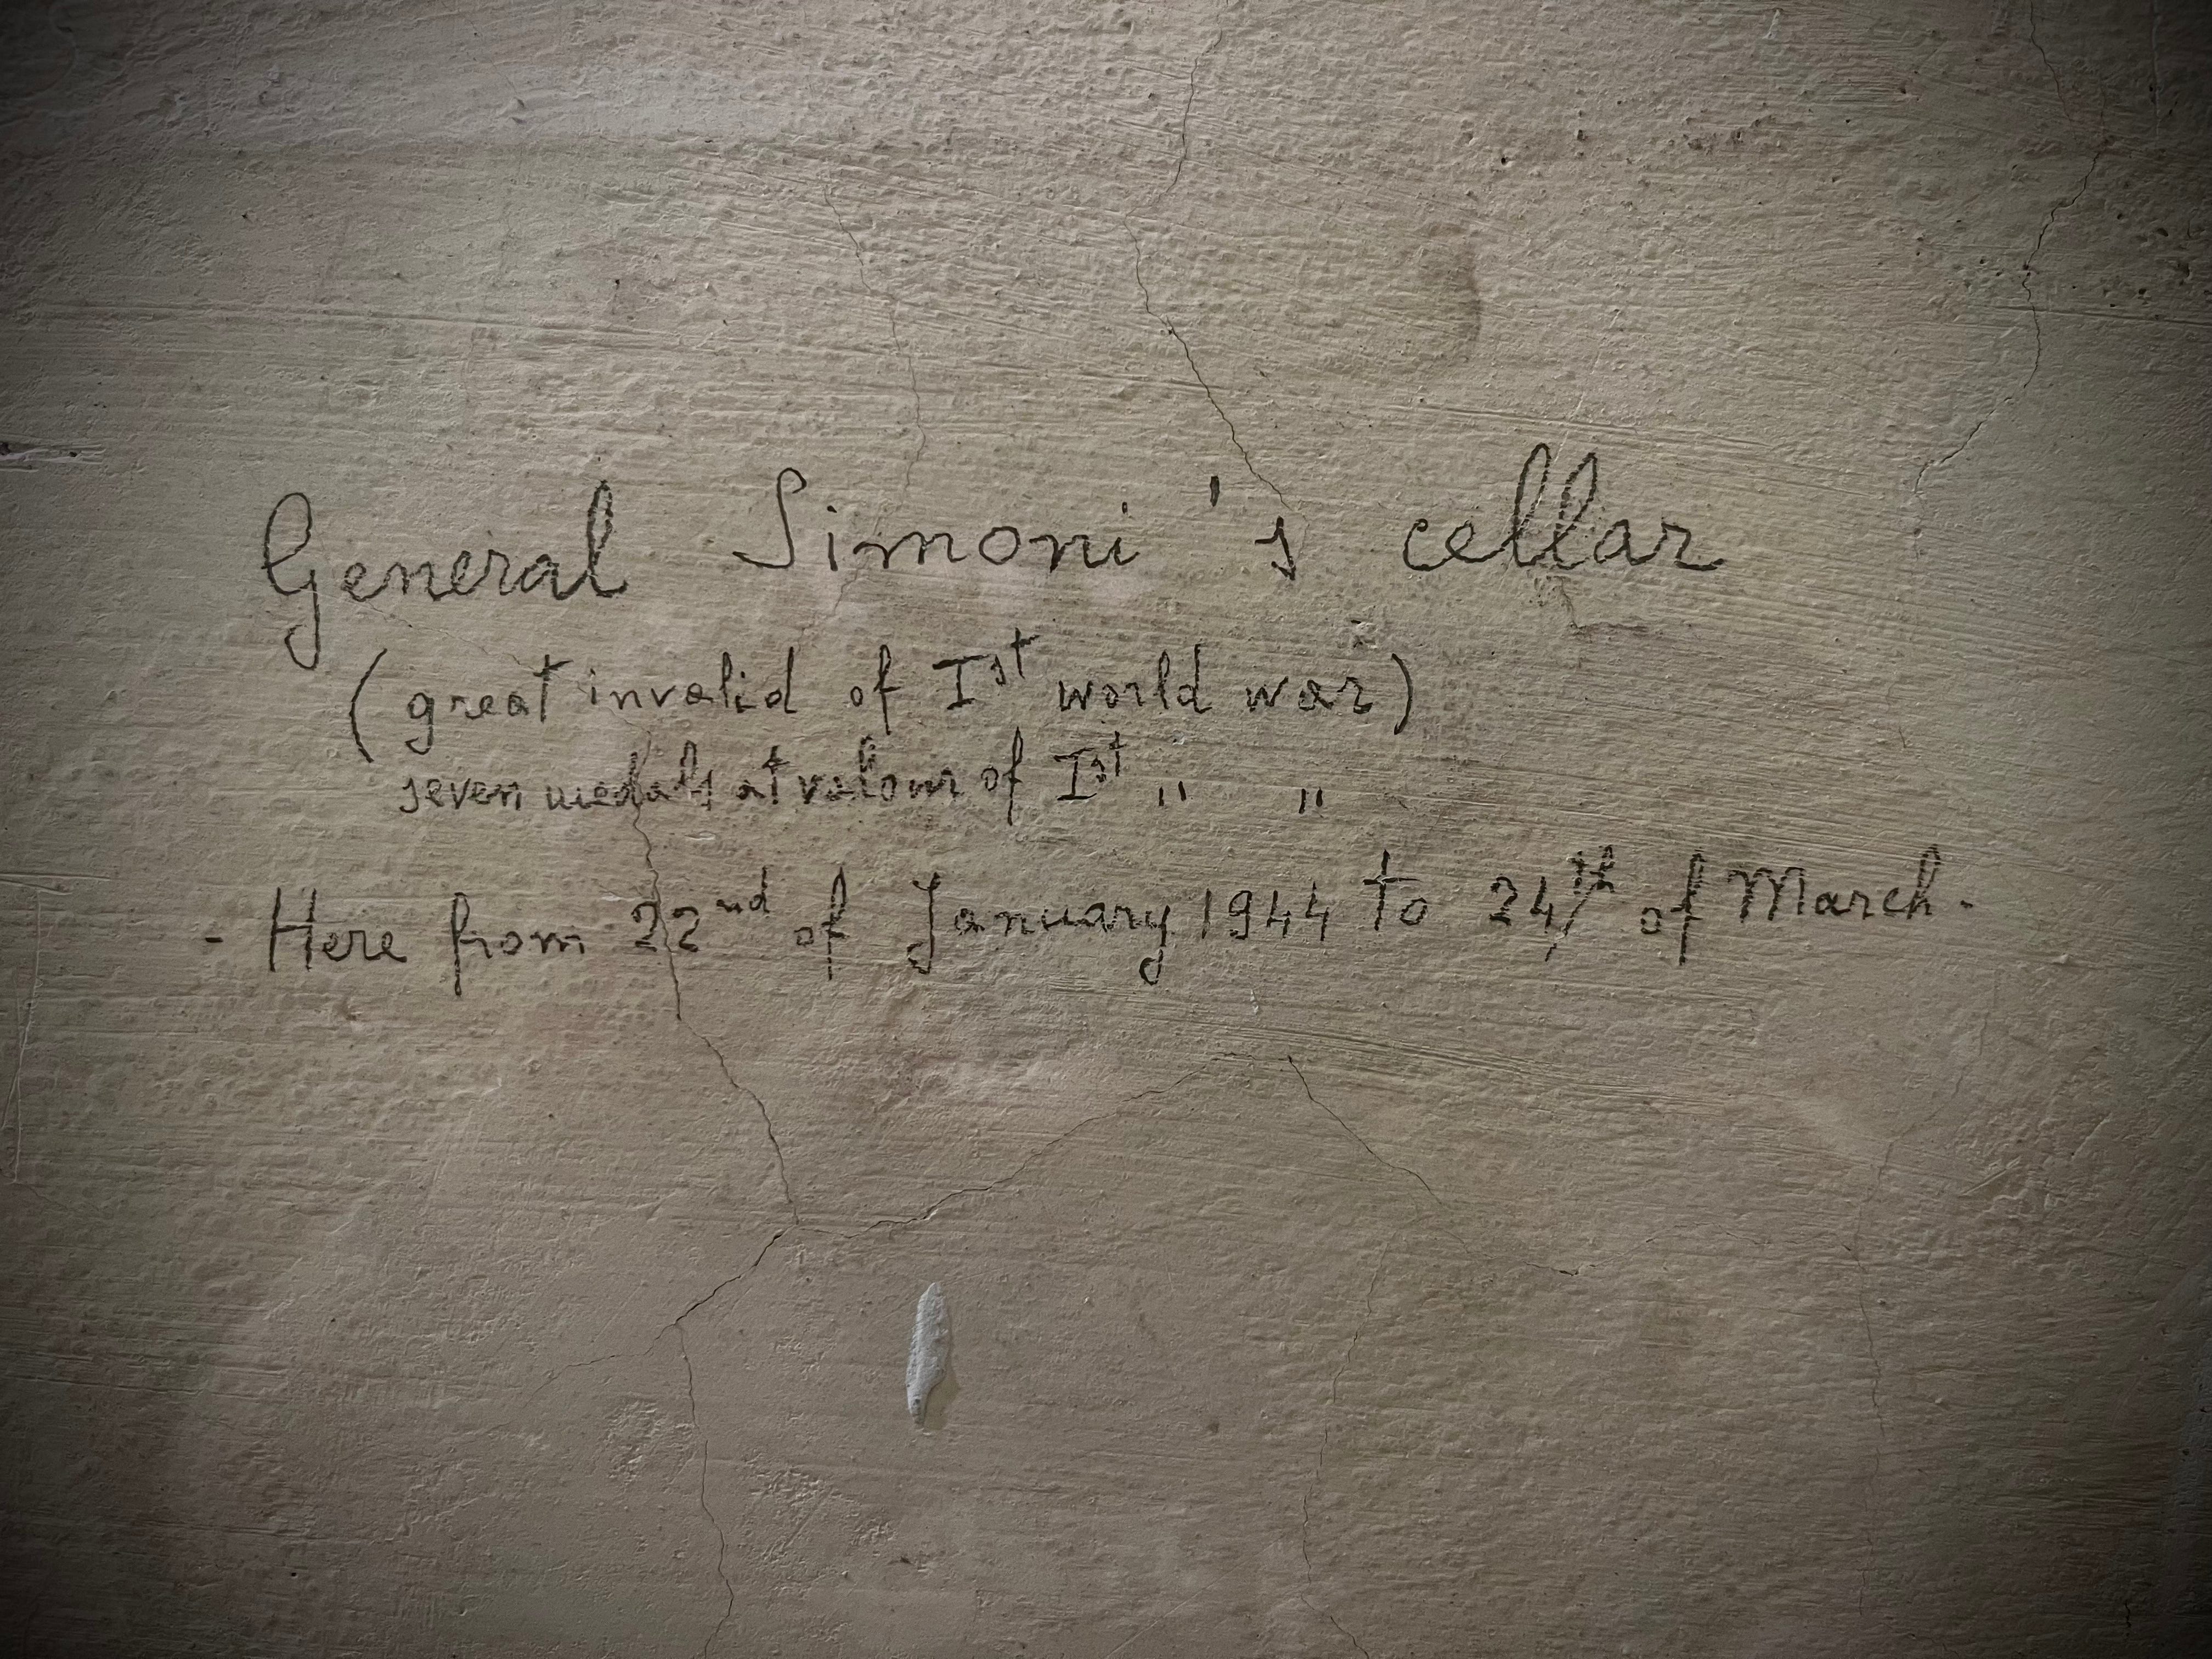 General Simoni's cellar
(great invalid of Ist world war)
seven medals at valour of Ist " "
- Here from 22nd of January 1944 to 24th of March -